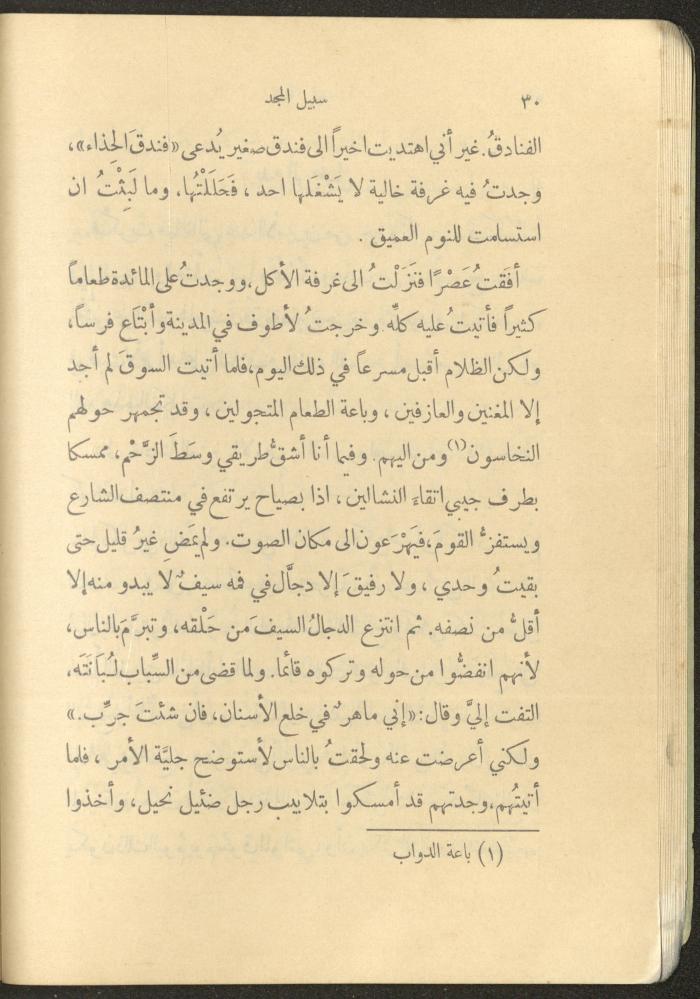 ٣٠ سبيل المجد
الفنادقُ. غير أني اهتديت اخيراً الى فندق صغير يُدعى «فندقَ الحِذاء»،
وجدتُ فيه غرفة خالية لا يَشْغَلها احد، فَحَلَلْتُها، وما لَبِثْتُ ان
استسلمت للنوم العميق.
أفَقتُ عَصْرًا فنَزَلْتُ الى غرفة الأكل، ووجدتُ على المائدة طعاماً
كثيراً فأتيتُ عليه كلِّه وخرجتُ لأطوف في المدينة وأبْتَاع فرساً،
ولكن الظلام أقبل مسرعاً في ذلك اليوم، فلما أتيت السوقَ لم أجد
إلا المغنين والعازفين، وباعة الطعام المتجولين، وقد تجمهر حولهم
النخاسون(١) ومن اليهم. وفيما أنا أشقُّ طريقي وسَطَ الزَّحْم، ممسكا
بطرف جيبي اتقاءَ النشالين، اذا بصياح يرتفع في منتصف الشارع
ويستفزُّ القومَ، فيَهْرَعون الى مكان الصوت. ولم يَمَضِ غيرُ قليل حتى
بقيتُ وحدي، ولا رفيقَ إلا دجَّال في فمه سيفٌ لا يبدو منه إلا
أقلُّ من نصفه. ثم انتزع الدجالُ السيفَ من حَلْقه، وتبرَّمَ بالناس،
لأنهم انفضُّوا من حوله وتركوه قائما. ولما قضى من السِّباب لُبَانَتَه،
التفت إليَّ وقال: «إني ماهرٌ في خلع الأسنان، فان شئتَ جرِّب.»
ولكني أعرضت عنه ولحقتُ بالناس لأستوضح جليَّة الأمر، فلما
أتيتُهم، وجدتهم قد أمسكوا بتلابيب رجل ضئيل نحيل، وأخذوا
(١) باعة الدواب